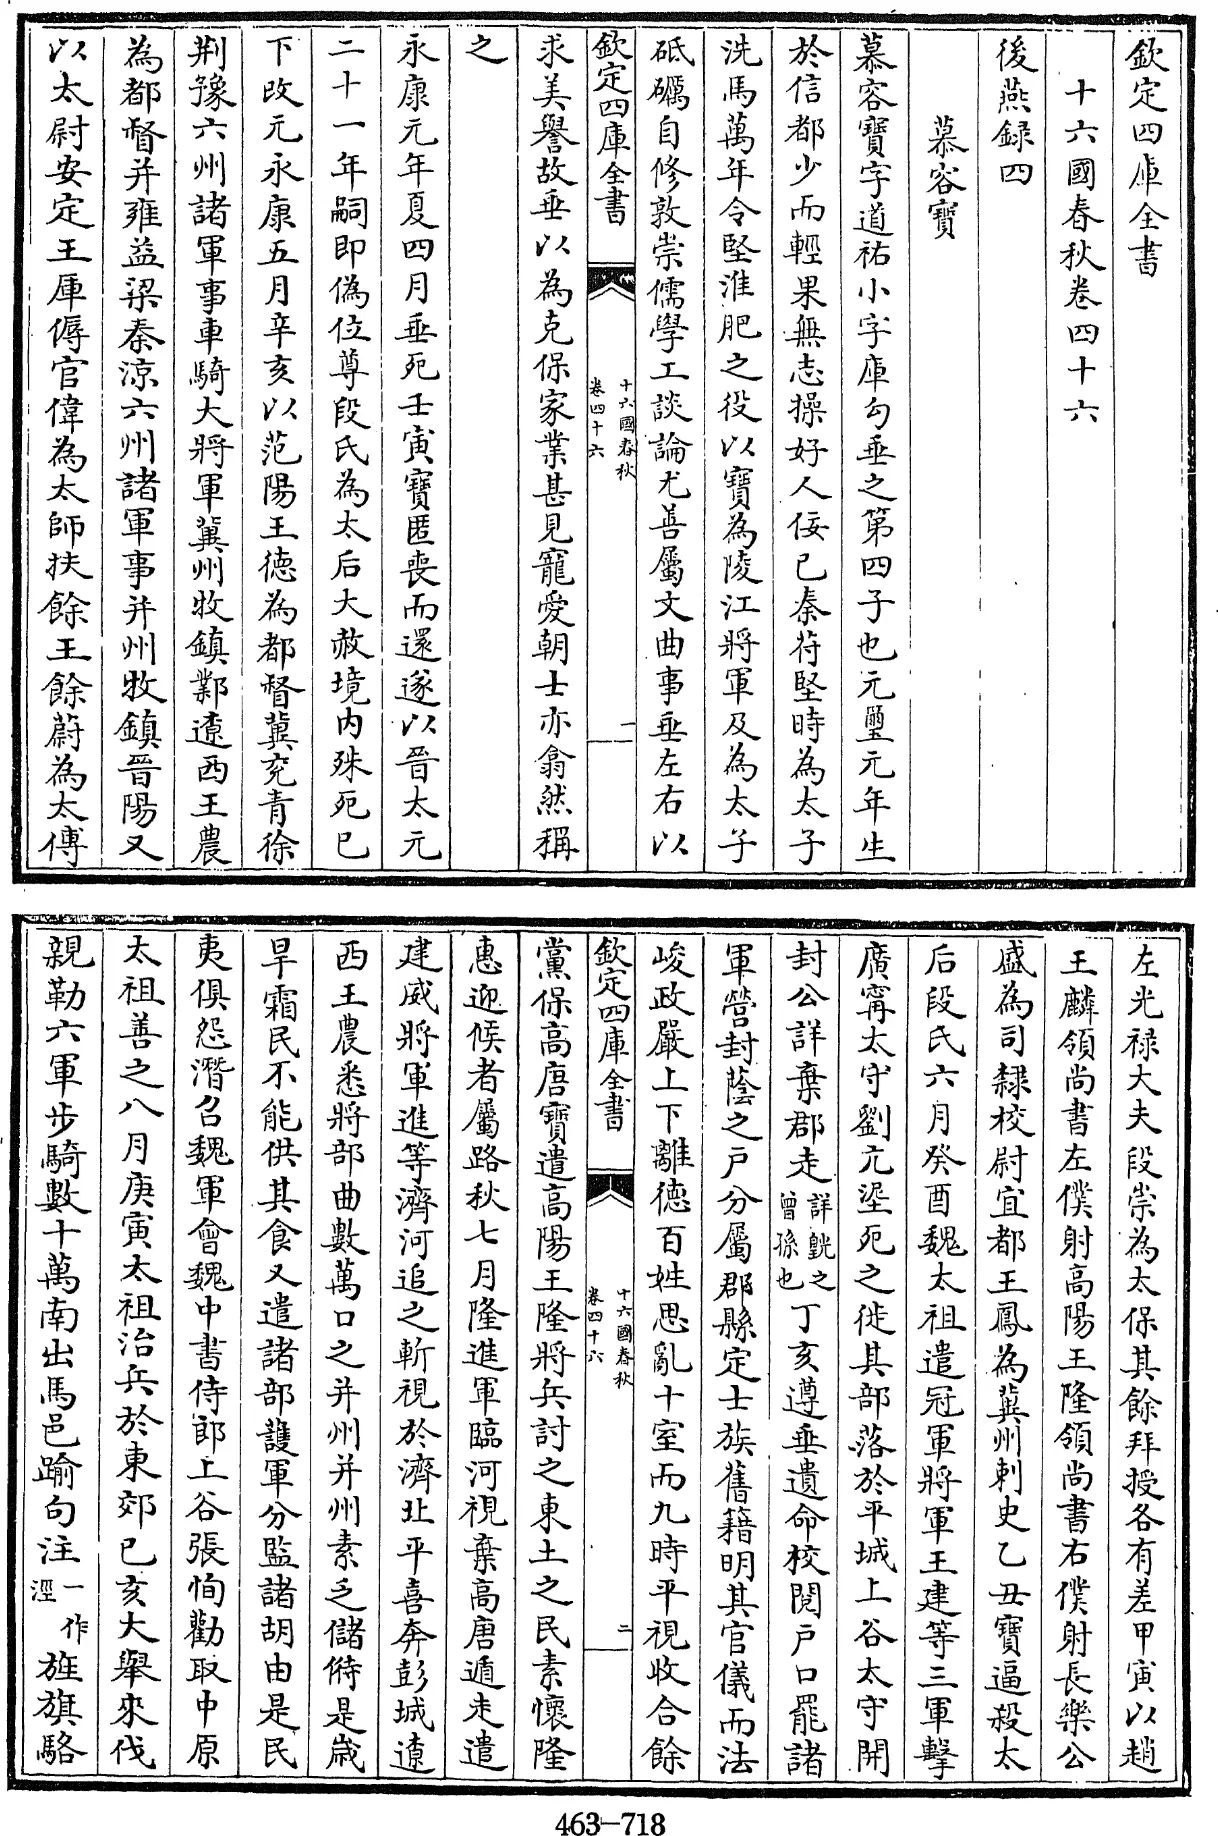 欽定四庫全書
十六國春秋卷四十六
後燕録四
慕容寶
慕容寶字道祐小字庫勾垂之第四子也元璽元年生
於信都少而輕果無志操好人佞已秦苻堅時為太子
洗馬萬年令堅淮肥之役以寶為陵江將軍及為太子
砥礪自修敦崇儒學工談論尤善屬文曲事垂左右以
欽定四庫全書
十六國春秋
卷四十六
一
求美譽故垂以為克保家業甚見寵愛朝士亦翕然稱
之
永康元年夏四月垂死壬寅寶匿喪而還遂以晉太元
二十一年嗣即偽位尊段氏為太后大赦境内殊死已
下改元永康五月辛亥以范陽王德為都督冀兖青徐
荆豫六州諸軍事車騎大將軍冀州牧鎮鄴遼西王農
為都督并雍益梁秦涼六州諸軍事并州牧鎮晉陽又
以太尉安定王庫傉官偉為太師扶餘王餘蔚為太傅
左光禄大夫段崇為太保其餘拜授各有差甲寅以趙
王麟領尚書左僕射高陽王隆領尚書右僕射長樂公
盛為司隸校尉宜都王鳳為冀州刺史乙丑寶逼殺太
后段氏六月癸酉魏太祖遣冠軍將軍王建等三軍擊
廣甯太守劉亢埿死之徙其部落於平城上谷太守開
封公詳棄郡走詳皝之曾孫也丁亥遵垂遺命校閲戶口罷諸
軍營封蔭之戶分屬郡縣定士族舊籍明其官儀而法
峻政嚴上下離德百姓思亂十室而九時平視收合餘
欽定四庫全書
十六國春秋
卷四十六
二
黨保高唐寶遣高陽王隆將兵討之東土之民素懷隆
惠迎候者屬路秋七月隆進軍臨河視棄高唐遁走遣
建威將軍進等濟河追之斬視於濟北平喜奔彭城遼
西王農悉將部曲數萬口之并州并州素乏儲偫是歲
旱霜民不能供其食又遣諸部護軍分監諸胡由是民
夷俱怨潛召魏軍會魏中書侍郎上谷張恂勸取中原
太祖善之八月庚寅太祖治兵於東郊已亥大舉來伐
親勒六軍步騎數十萬南出馬邑踰句注一作涇旌旗駱
463-718